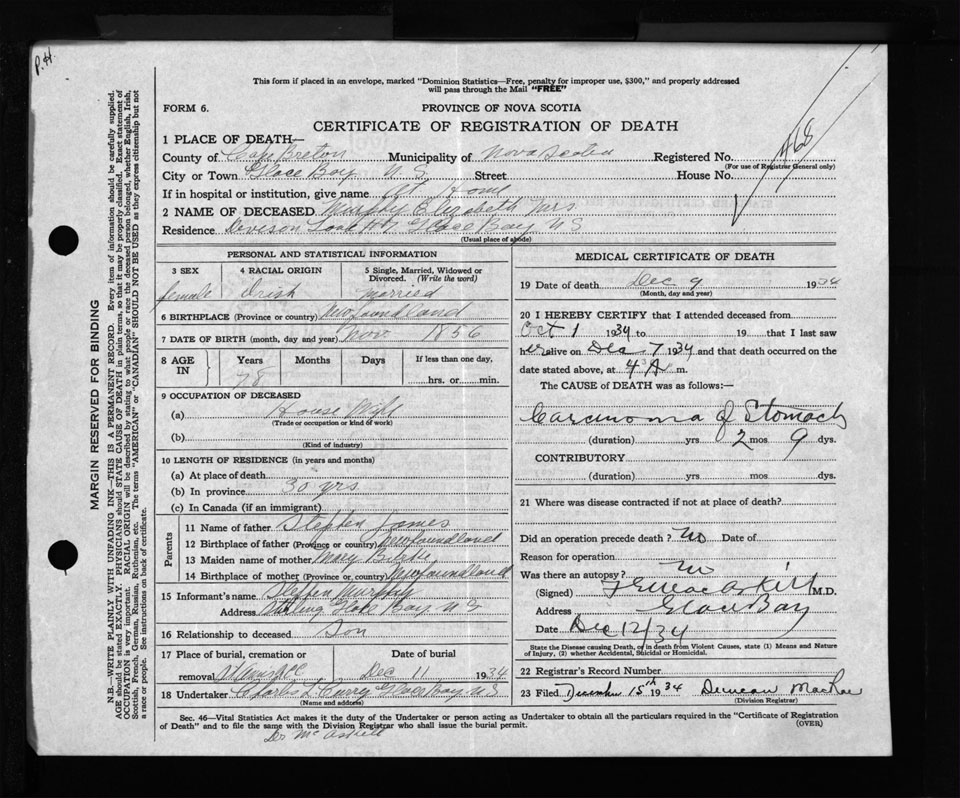 P.H.
This form if placed in an envelope, marked "Dominion Statistics—Free, penalty for improper use, $300," and properly addressed
will pass through the Mail "FREE"
FORM 6. PROVINCE OF NOVA SCOTIA
CERTIFICATE OF REGISTRATION OF DEATH
1 PLACE OF DEATH—
County of Cape Breton Municipality of Nova Scotia Registered No. 468
(For use of Registrar General only)
City or Town Glace Bay N.S. Street House No.
If in hospital or institution, give name At Home
2 NAME OF DECEASED Murphy Elizabeth Mrs
Residence Glace Bay NS
(Usual place of abode)
PERSONAL AND STATISTICAL INFORMATION
3 SEX 4 RACIAL ORIGIN 5 Single, Married, Widowed or Divorced. (Write the word)
female Irish married
6 BIRTHPLACE (Province or country) Newfoundland
7 DATE OF BIRTH (month, day and year) Nov 1856
8 AGE IN Years Months Days If less than one day,
78 hrs. or min.
9 OCCUPATION OF DECEASED
(a) House Wife
(Trade or occupation or kind of work)
(b)
(Kind of industry)
10 LENGTH OF RESIDENCE (in years and months)
(a) At place of death
(b) In province 30 yrs
(c) In Canada (if an immigrant)
Parents
11 Name of father Stephen James
12 Birthplace of father (Province or country) Newfoundland
13 Maiden name of mother Mary
14 Birthplace of mother (Province or country) Newfoundland
15 Informant's name Stephen Murphy
Address Sterling Glace Bay NS
16 Relationship to deceased Son
17 Place of burial, cremation or removal Date of burial
Dec 11 1934
18 Undertaker Charles L Curry Glace Bay NS
(Name and address)
MEDICAL CERTIFICATE OF DEATH
19 Date of death Dec 9 1934
(Month, day and year)
20 I HEREBY CERTIFY that I attended deceased from
Oct 1 1934 to 19 that I last saw
her alive on Dec 7 1934 and that death occurred on the
date stated above, at 4 A m.
The CAUSE of DEATH was as follows:—
Carcinoma of Stomach
(duration) yrs 2 mos 9 dys.
CONTRIBUTORY
(duration) yrs mos dys.
21 Where was disease contracted if not at place of death?
Did an operation precede death? No Date of
Reason for operation
Was there an autopsy? No
(Signed) M.D.
Address Glace Bay
Date Dec 12/34
State the Disease causing Death, or in death from Violent Causes, state (1) Means and Nature
of Injury, (2) whether Accidental, Suicidal or Homicidal.
22 Registrar's Record Number
23 Filed December 15th 1934 Duncan MacRae
(Division Registrar)
Sec. 46—Vital Statistics Act makes it the duty of the Undertaker or person acting as Undertaker to obtain all the particulars required in the "Certificate of Registration
of Death" and to file the same with the Division Registrar who shall issue the burial permit. (OVER)
Dr.
MARGIN RESERVED FOR BINDING
N.B.—WRITE PLAINLY WITH UNFADING INK—THIS IS A PERMANENT RECORD. Every item of information should be carefully supplied.
AGE should be stated EXACTLY. PHYSICIANS should STATE CAUSE OF DEATH in plain terms, so that it may be properly classified. Exact statement of
OCCUPATION is very important. RACIAL ORIGIN will be described by stating to what people or race the deceased person belonged, whether English, Irish,
Scottish, French, German, Russian, Ruthenian, etc. The terms "AMERICAN" or "CANADIAN" SHOULD NOT BE USED as they express citizenship but not
a race or people. See instructions on back of certificate.